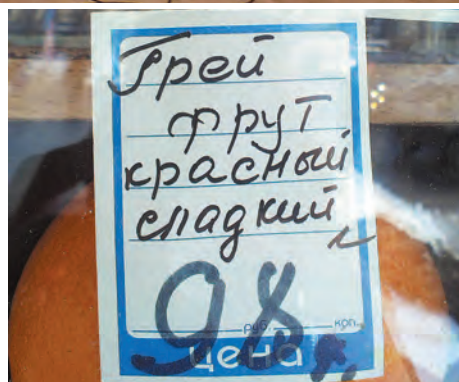 Грей
фрут
красный
сладкий
98
руб. коп.
цена